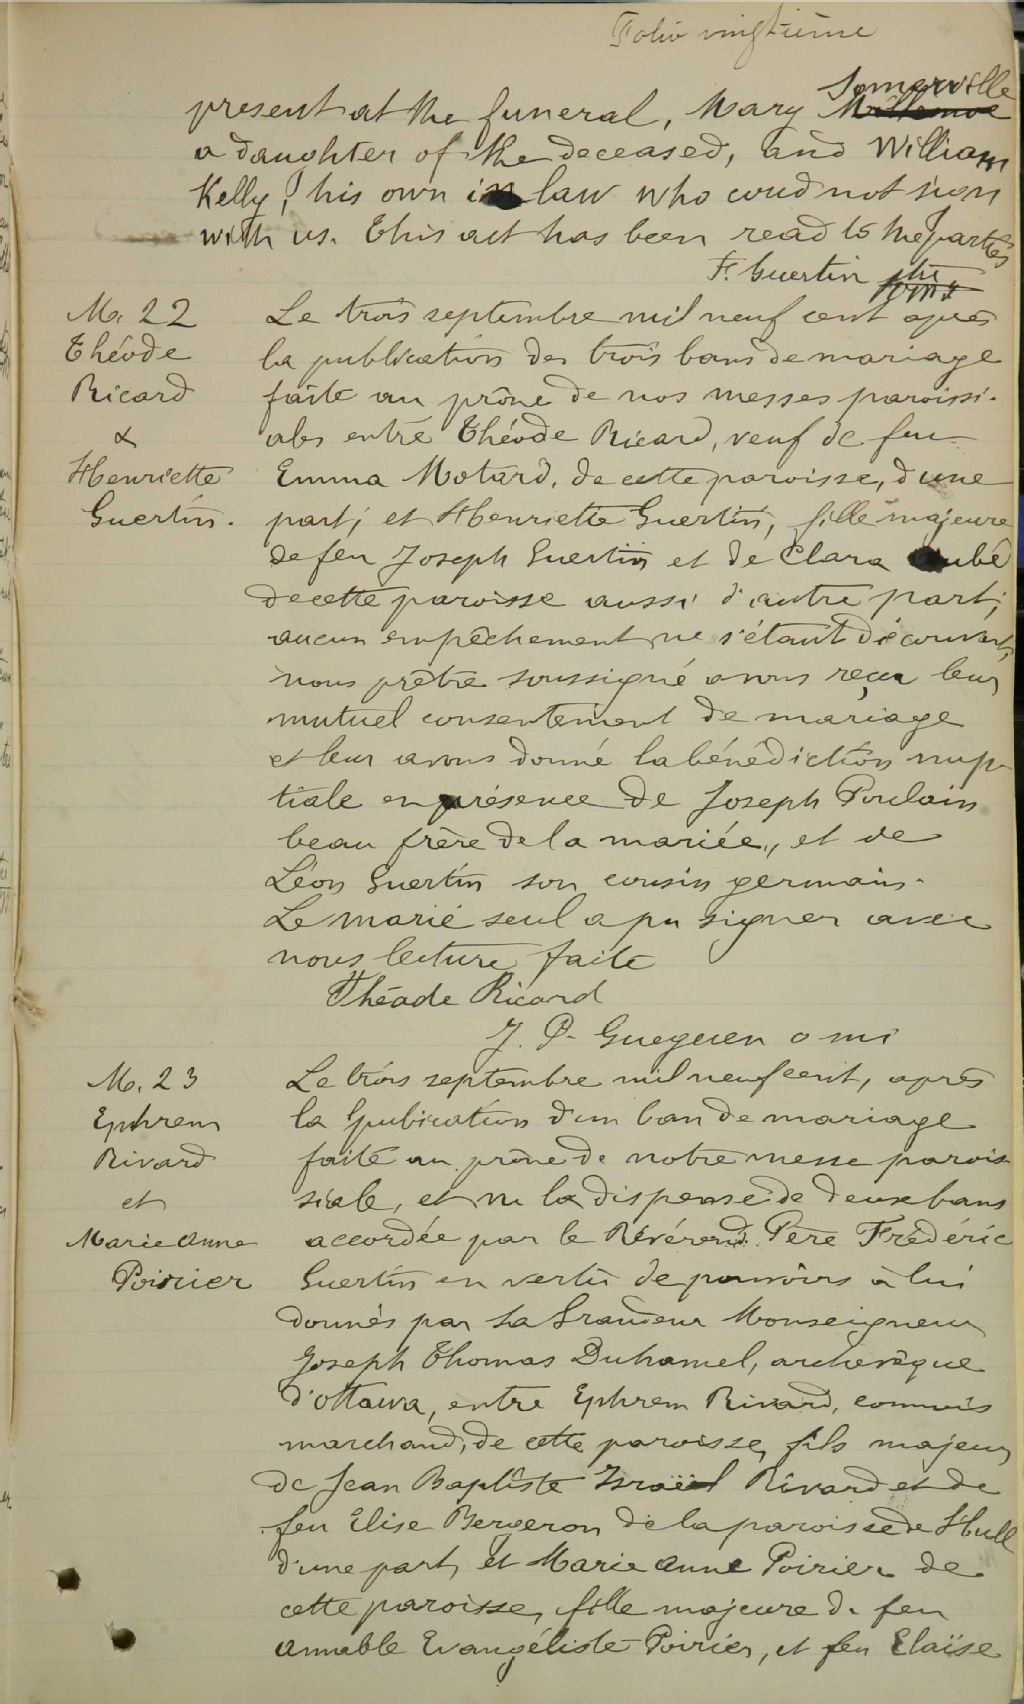 Folio vingtième
Somerville
present at the funeral, Mary
a daughter of the deceased, and William
Kelly, his own in law who coud not sign
with us. This act has been read to the parties
F. Guertin ptre
M. 22
Théode
Ricard
&
Henriette
Guertin.
Le trois septembre mil neuf cent après
la publication des trois bans de mariage
faite au prône de nos messes paroissi-
ales entre Théode Ricard, veuf de feu
Emma Motard, de cette paroisse, d'une
part; et Henriette Guertin, fille majeure
de feu Joseph Guertin et de Clara Aubé
de cette paroisse aussi d'autre part;
aucun empêchement ne s'étant découvert,
nous prêtre soussigné avons reçu leur
mutuel consentement de mariage
et leur avons donné la bénédiction nup-
tiale en présence de Joseph Poulain
beau frère de la mariée, et de
Léon Guertin son cousin germain.
Le marié seul a pu signer avec
nous lecture faite
Théode Ricard
J. P. Gueguen o m i
M. 23
Ephrem
Rivard
et
Marie Anne
Poirier
Le trois septembre mil neuf cent, après
la publication d'un ban de mariage
faite au prône de notre messe parois
siale, et vu la dispense de deux bans
accordée par le Révérend Père Frédéric
Guertin en vertu de pouvoirs à lui
donnés par Sa Grandeur Monseigneur
Joseph Thomas Duhamel, archevêque
d'Ottawa, entre Ephrem Rivard, commis
marchand, de cette paroisse, fils majeur
de Jean Baptiste Israël Rivard et de
feu Elise Bergeron de la paroisse de Hull
d'une part, et Marie Anne Poirier de
cette paroisse, fille majeure de feu
Amable Evangéliste Poirier, et feu Elaïse